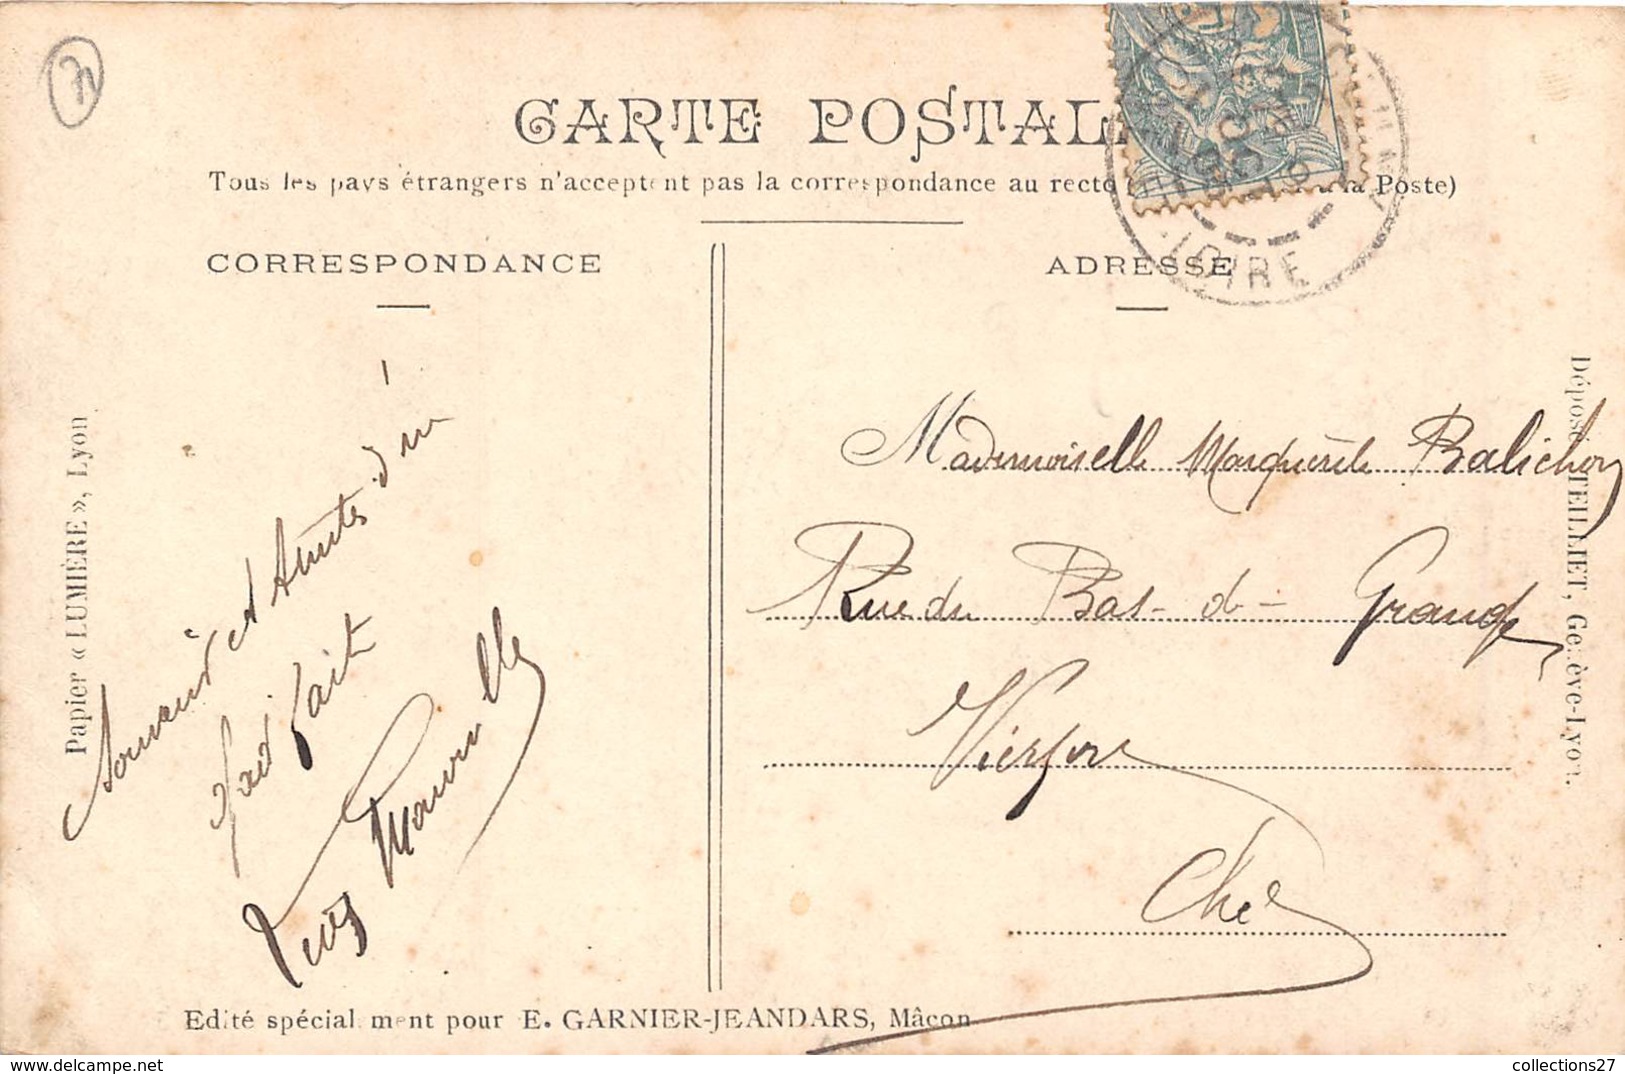 CARTE POSTALE
Tous les pays étrangers n'acceptent pas la correspondance au recto à la Poste)
CORRESPONDANCE
ADRESSE
LOIRE
Papier « LUMIÈRE », Lyon
Souvenir et Amitiés d'un
fait
Mademoiselle Marguerite Balichon
Rue du Bas-de-Grange
Vierzon
Cher
Déposé TEILLIET, Genève-Lyon.
Edité spécialement pour E. GARNIER-JEANDARS, Mâcon
collections27